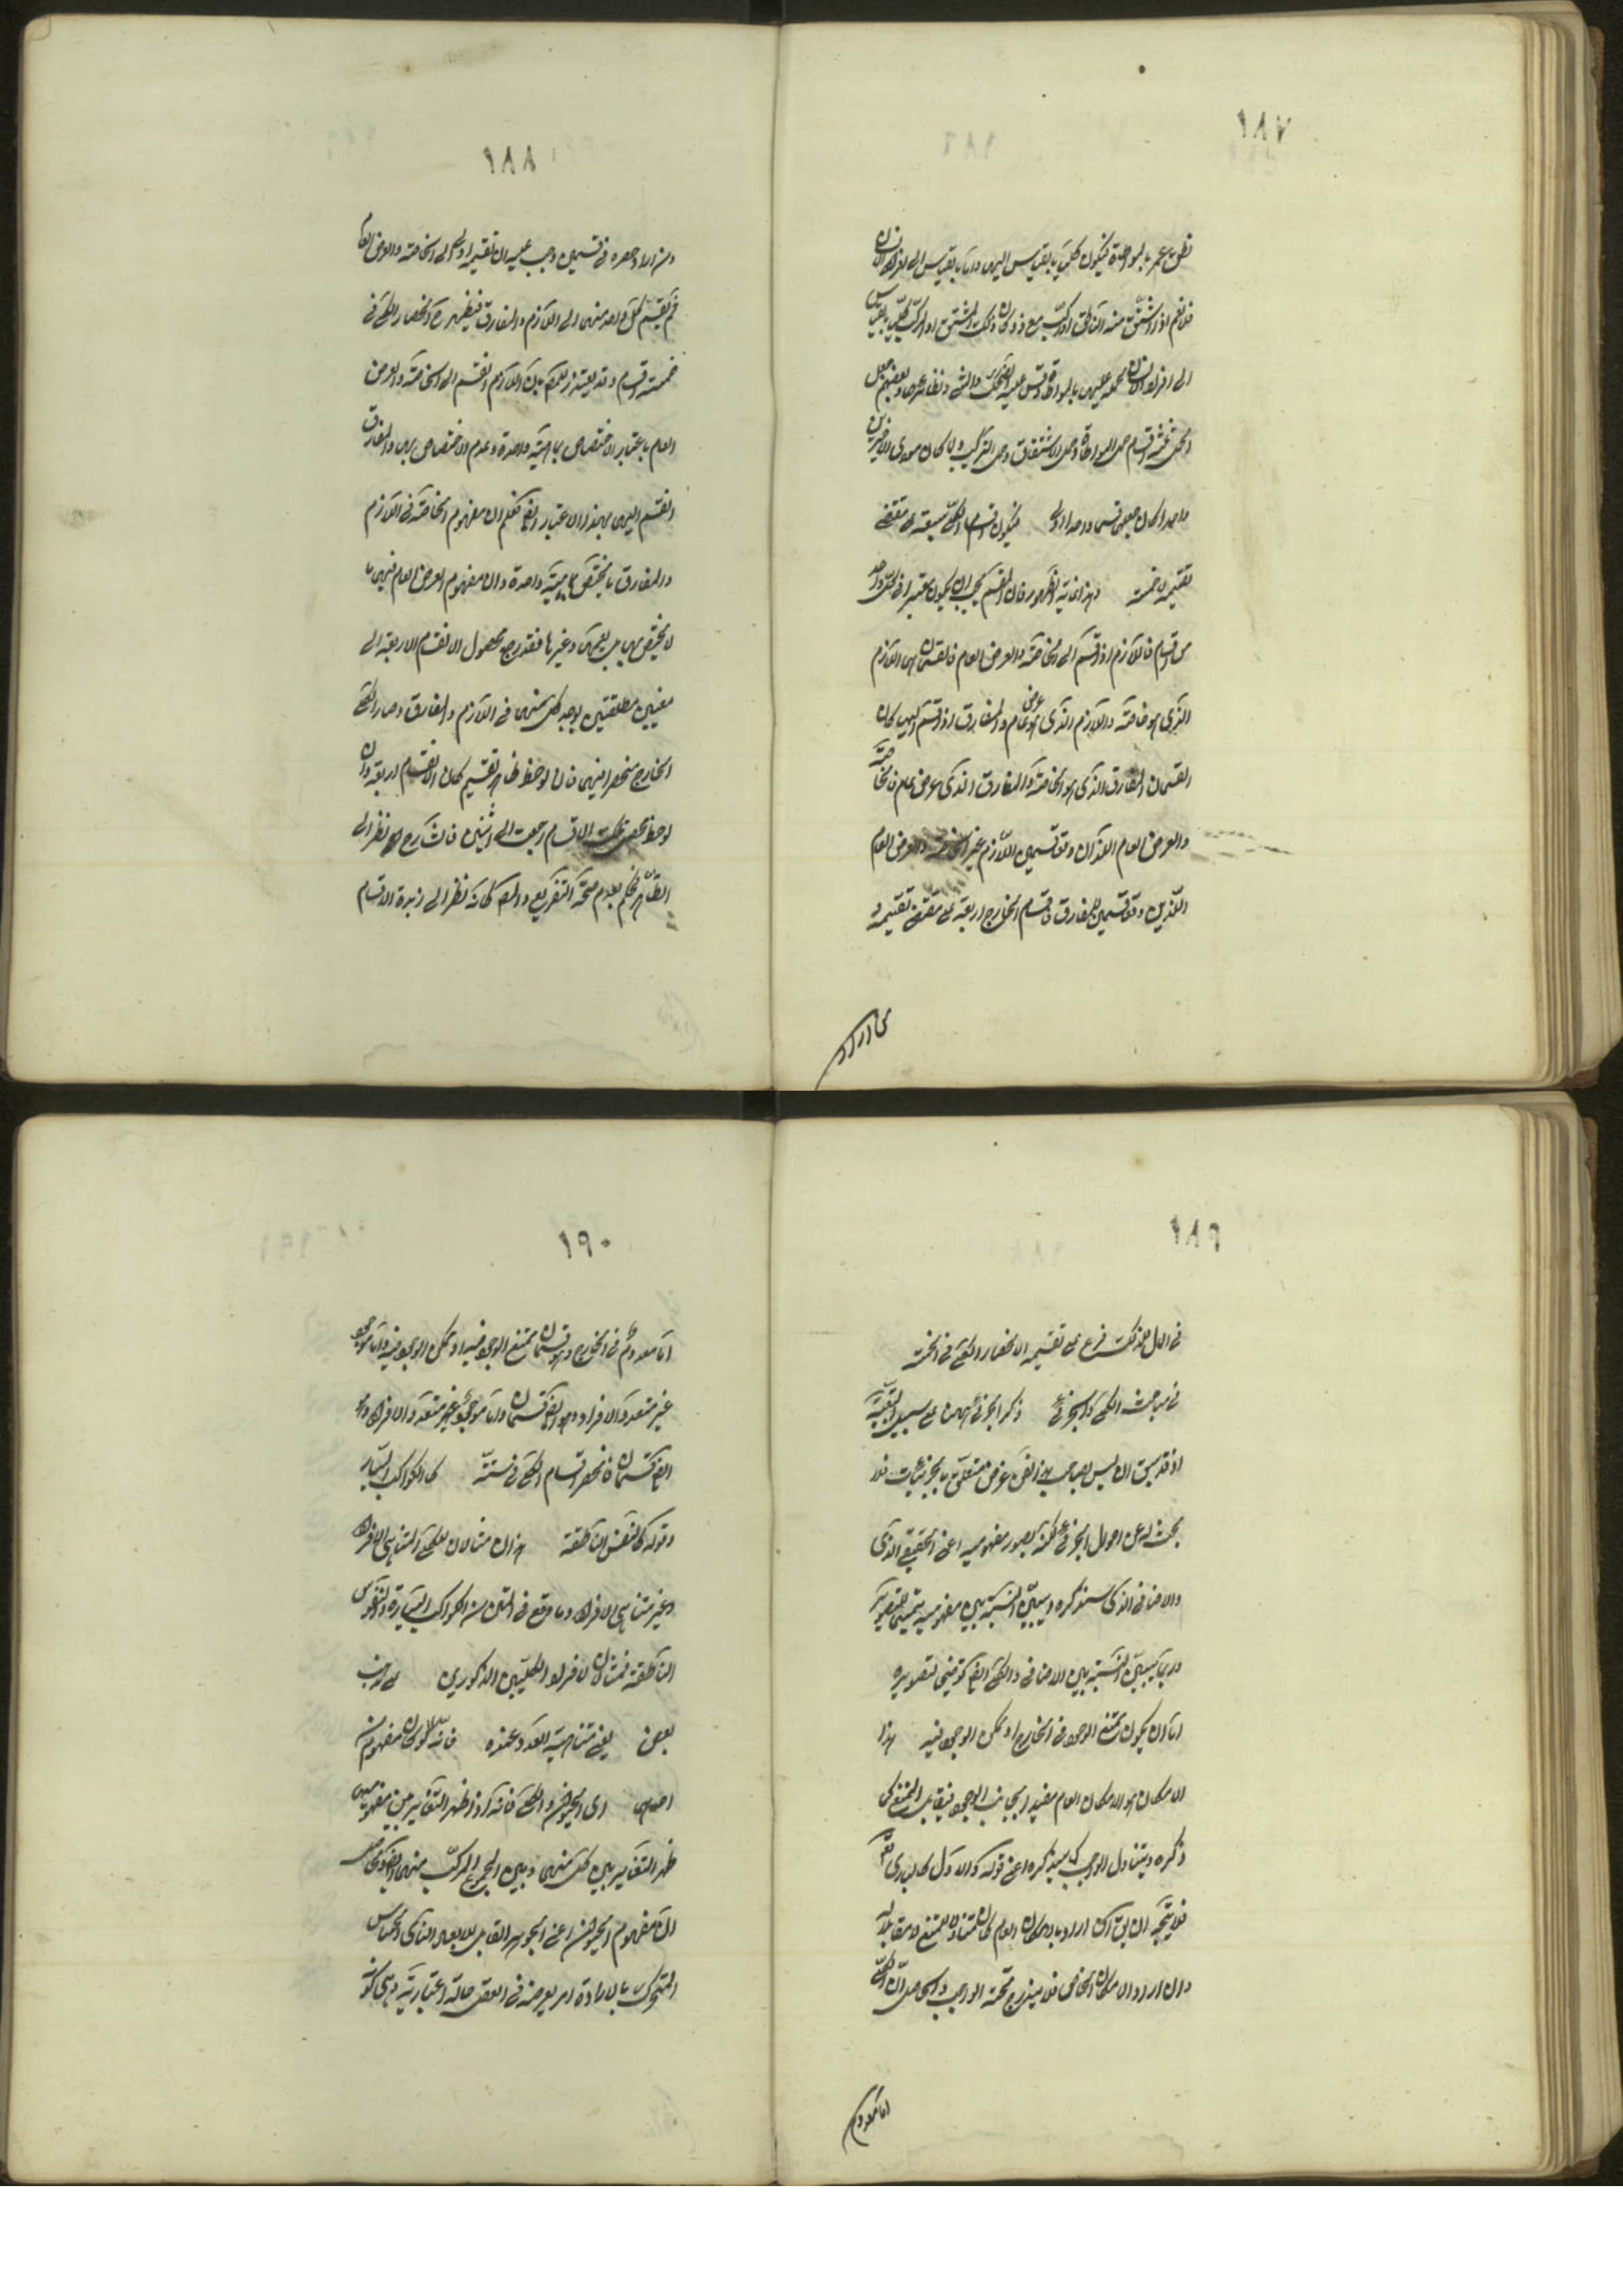 ١٨٧
نطق بل عمر بالمواطاة فيكون كليا بالقياس اليهم واما بالقياس الى افراد الانسان
فلا نعم اذا اشتق منه الناطق او ركب مع ذو كان ذلك المشتق او المركب كليا بالقياس
الى افراد الانسان لحمله عليهم بالمواطاة وقس عليه الضحك والمشي ونظائرهما وبعضهم جعل
الحمل ثلثة اقسام حمل المواطاة وحمل الاشتقاق وحمل التركيب ولما كان مودى الاخيرين
واحدا كان جعلهما قسما واحدا اولى فيكون اقسام الكلي سبعة على مقتضى
تقسيمه لا خمسة وهذا في غاية الظهور فان المقسم يجب ان يكون معتبرا في كل واحد
من اقسامه فاللازم اذا قسم الى الخاصة والعرض العام فالقسمان هما اللازم
الذي هو خاصة واللازم الذي هو عرض عام والمفارق اذا قسم اليهما كان
القسمان المفارق الذي هو الخاصة والمفارق الذي هو عرض عام فالخاصة
والعرض العام اللذان وقعا قسمين اللازم غير الخاصة والعرض العام
اللذين وقعا قسمين للمفارق فاقسام الخارج اربعة على مقتضى تقسيمه و
من اراد
١٨٨
من اراد حصره في قسمين وجب عليه ان يقسمه اولا الى الخاصة والعرض العام
ثم يقسم كل واحد منهما الى اللازم والمفارق فيظهر ح انحصار الكلي في
خمسة اقسام وقد يعتذر للمصم بان اللازم انقسم الى الخاصة والعرض
العام باعتبار الاختصاص بماهية واحدة وعدم الاختصاص بها والمفارق
انقسم اليهما بهذا الاعتبار ايضا فعلم ان مفهوم الخاصة في اللازم
والمفارق ما يختص بماهية واحدة وان مفهوم العرض العام فيهما ما
لا يختص بها بل يعمها وغيرها فقد رجع محصول الاقسام الاربعة الى
معنيين مطلقين يوجد كل منهما في اللازم والمفارق وصار الكلي
الخارج منحصرا فيهما فان لوحظ ظاهر تقسيم كان الاقسام اربعة وان
لوحظ محصل تلك الاقسام رجعت الى اثنين فالشارح نظر الى
الظاهر فحكم بعدم صحة التفريع والمصم كانه نظر الى زبدة الاقسام
١٨٩
في المال فلذلك فرع على تقسيمه الانحصار الكلي في الخمسة
في مباحث الكلي والجزئي ذكر الجزئي ههنا على سبيل التبعية
اذ قد سبق ان ليس لصاحب هذا الفن غرض متعلق بالجزئيات فلا
بحث له عن احوال الجزئي لكنه يصور مفهوميه اعني الحقيقي الذي
والاضافي الذي سنذكره ويبين النسبة بين مفهوميه تتميما للتصوير
وربما يبين النسبة بين الاضافي والكلي ايضا توضيحا لتصويره
اما ان يكون ممتنع الوجود في الخارج او ممكن الوجود فيه هذا
الامكان هو الامكان العام مقيدا بجانب الوجود فيقابل الممتنع كما
ذكره ويتناول الواجب كما سيذكره اعني قوله والاول كالباري تعم
فلا يتجه ان يق ان اراد بالامكان العام كان متناولا للممتنع لا مقابلا له
وان اراد الامكان الخاص فلا يندرج تحته الواجب والحاصل ان الكلي
اما معدوم
١٩٠
اما معدوم في الخارج وهو قسمان ممتنع الوجود فيه او ممكن الوجود فيه واما موجود
غير متعدد الافراد وهو ايضا قسمان واما موجود غير متعدد الافراد وهو
ايضا قسمان فانحصر اقسام الكلي في ستة كالكواكب السيارة
وقوله كالنفس الناطقة هذان مثالان للكلي المتناهي الافراد
وغير متناهي الافراد وما وقع في المتن من الكواكب السيارة والنفوس
الناطقة فمثالان لافراد الكليين المذكورين على مذهب
بعض يعني متناهية العدد عنده فانه لو كان مفهوم
احدهما اي الحيوان والكلي فانه اذا ظهر التغاير بين مفهوميهما
ظهر التغاير بين كل منهما وبين المجموع المركب منهما ايضا والحاصل
ان مفهوم الحيوان اعني الجوهر القابل للابعاد النامي الحساس
المتحرك بالارادة امر يعرضه في العقل حالة اعتبارية هي كونه